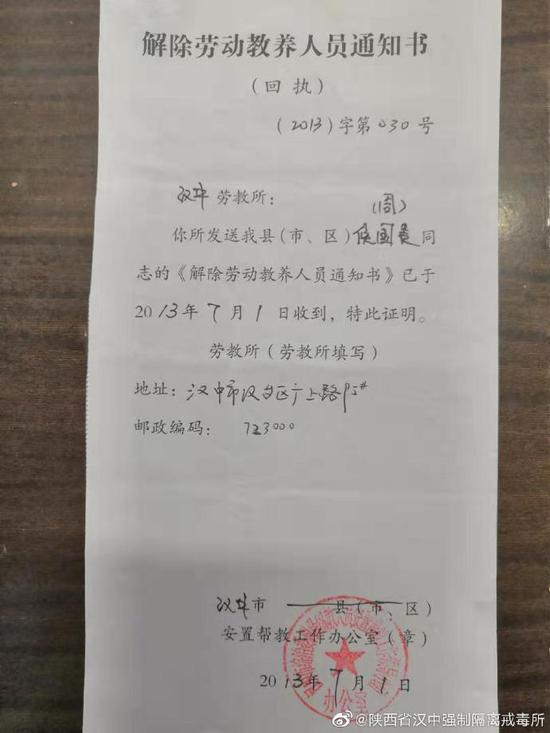 解除劳动教养人员通知书
（回执）
（2013）字第030号
汉中劳教所：
（周）
你所发送我县（市、区）侯国贵同
志的《解除劳动教养人员通知书》已于
2013年7月1日收到，特此证明。
劳教所（劳教所填写）
地址：汉中市汉台区
邮政编码：723000
汉中市 县（市、区）
安置帮教工作办公室（章）
2013年7月1日
办公室
@陕西省汉中强制隔离戒毒所